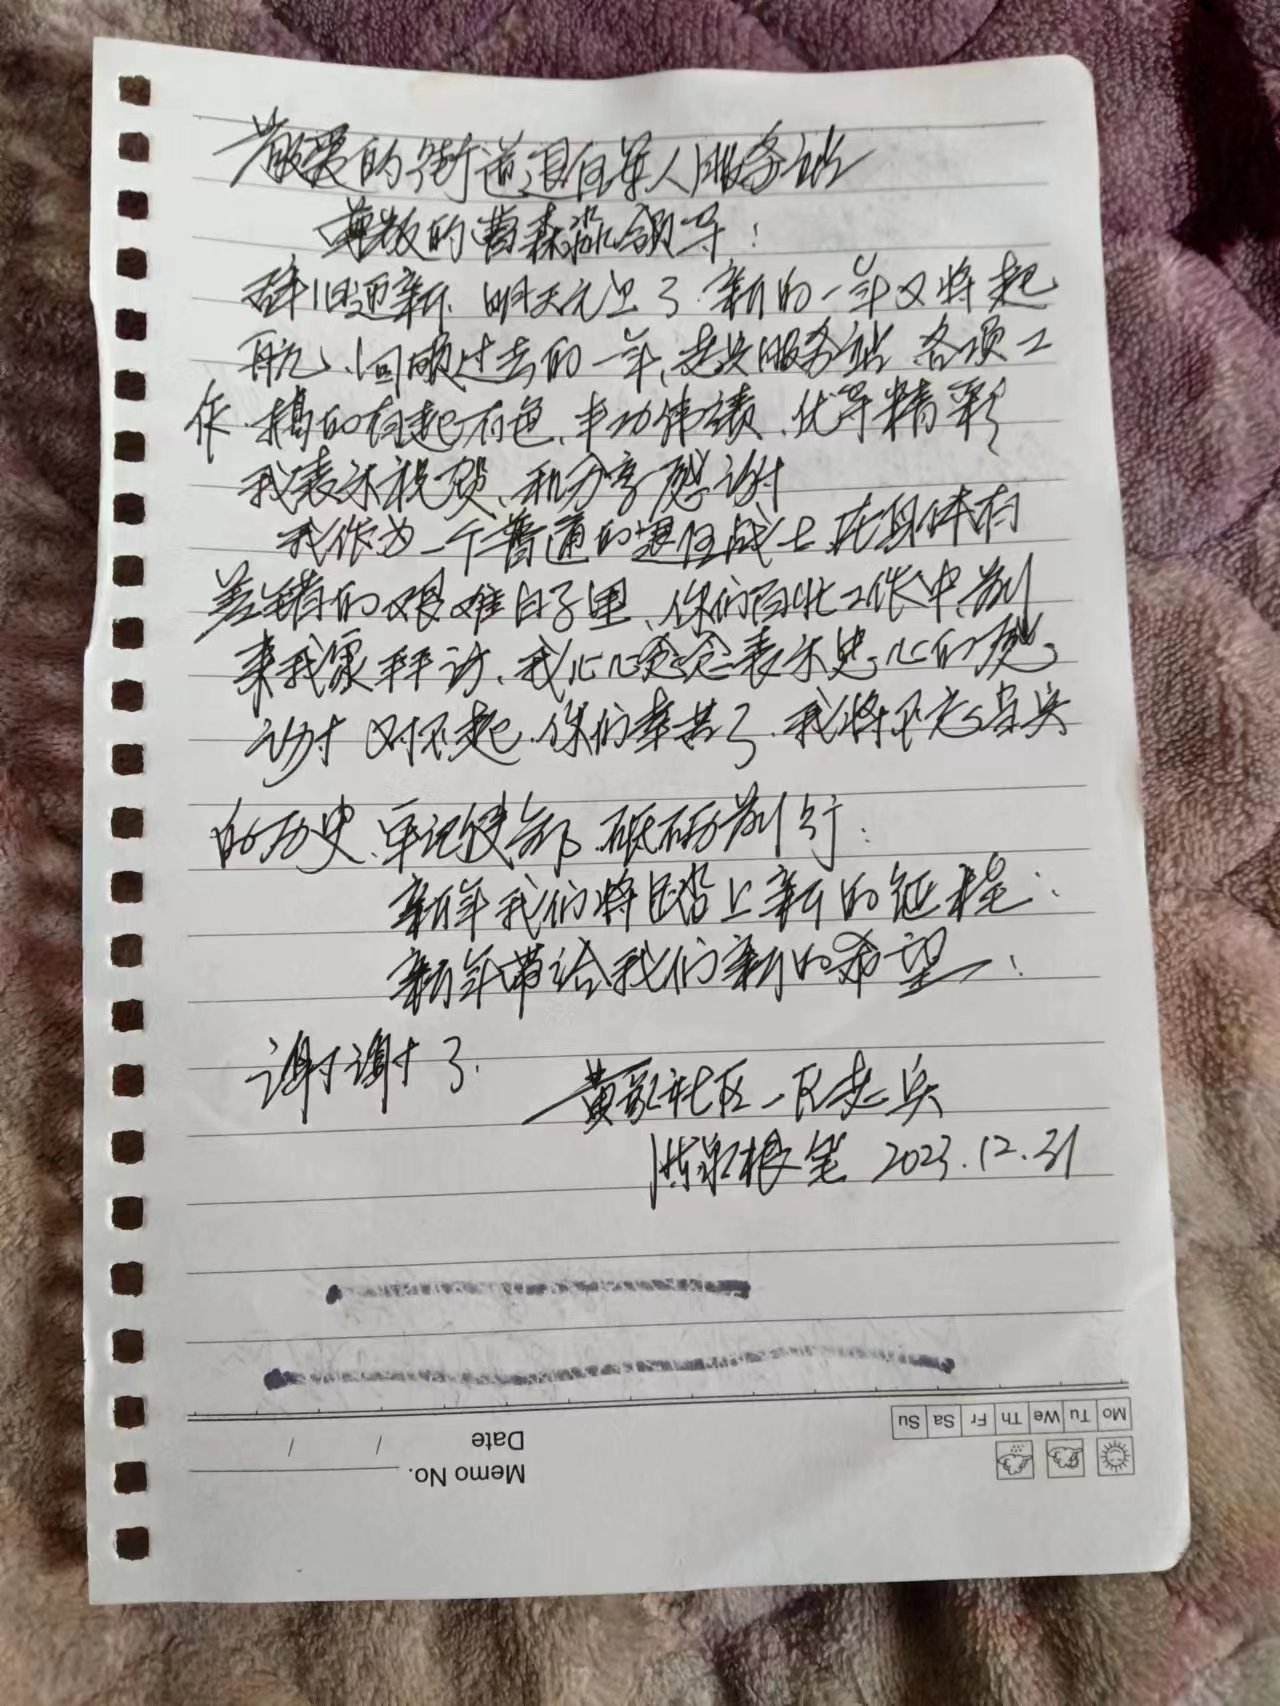 敬爱的街道退伍军人服务站
尊敬的曹森淼领导：
辞旧迎新、明天元旦了、新的一年又将起
航、回顾过去的一年、老兵服务站、各项工
作、搞的有起有色、丰功伟绩、优异精彩
我表示祝贺、和分享感谢
我作为一个普通的退伍战士、在身体有
差错的艰难日子里、你们百忙工作中、前
来我家拜访、我心心念念表示忠心的感
谢 对不起、你们辛苦了、我将不忘老兵
的历史、牢记使命、砥砺前行：
新年我们将踏上新的征程：
新年带给我们新的希望！
谢谢了、
社区一民老兵
根笔 2023.12.31
Mo Tu We Th Fr Sa Su
Date / /
Memo No.